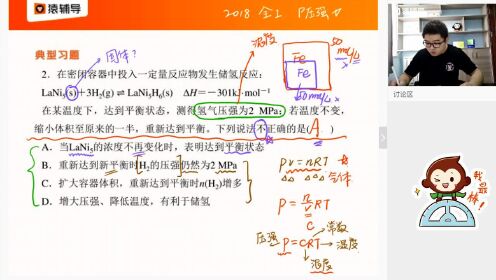 猿辅导
2018 全1 压强
典型习题
固体?
浓度
2. 在密闭容器中投入一定量反应物发生储氢反应:
LaNi₅(s)+3H₂(g) ⇌ LaNi₅H₆(s) ΔH=−301kJ·mol⁻¹
在某温度下,达到平衡状态,测得氢气压强为2 MPa;若温度不变,
缩小体积至原来的一半,重新达到平衡。下列说法不正确的是( A )
A. 当LaNi₅的浓度不再变化时,表明达到平衡状态
B. 重新达到新平衡时H₂的压强仍然为2 MPa
C. 扩大容器体积,重新达到平衡时n(H₂)增多
D. 增大压强、降低温度,有利于储氢
Fe
Fe
50 mol/L
50 mol/L
PV=nRT
气体
P=n/V RT
C
压强 P=CRT
常数
温度
浓度
讨论区
我最棒!